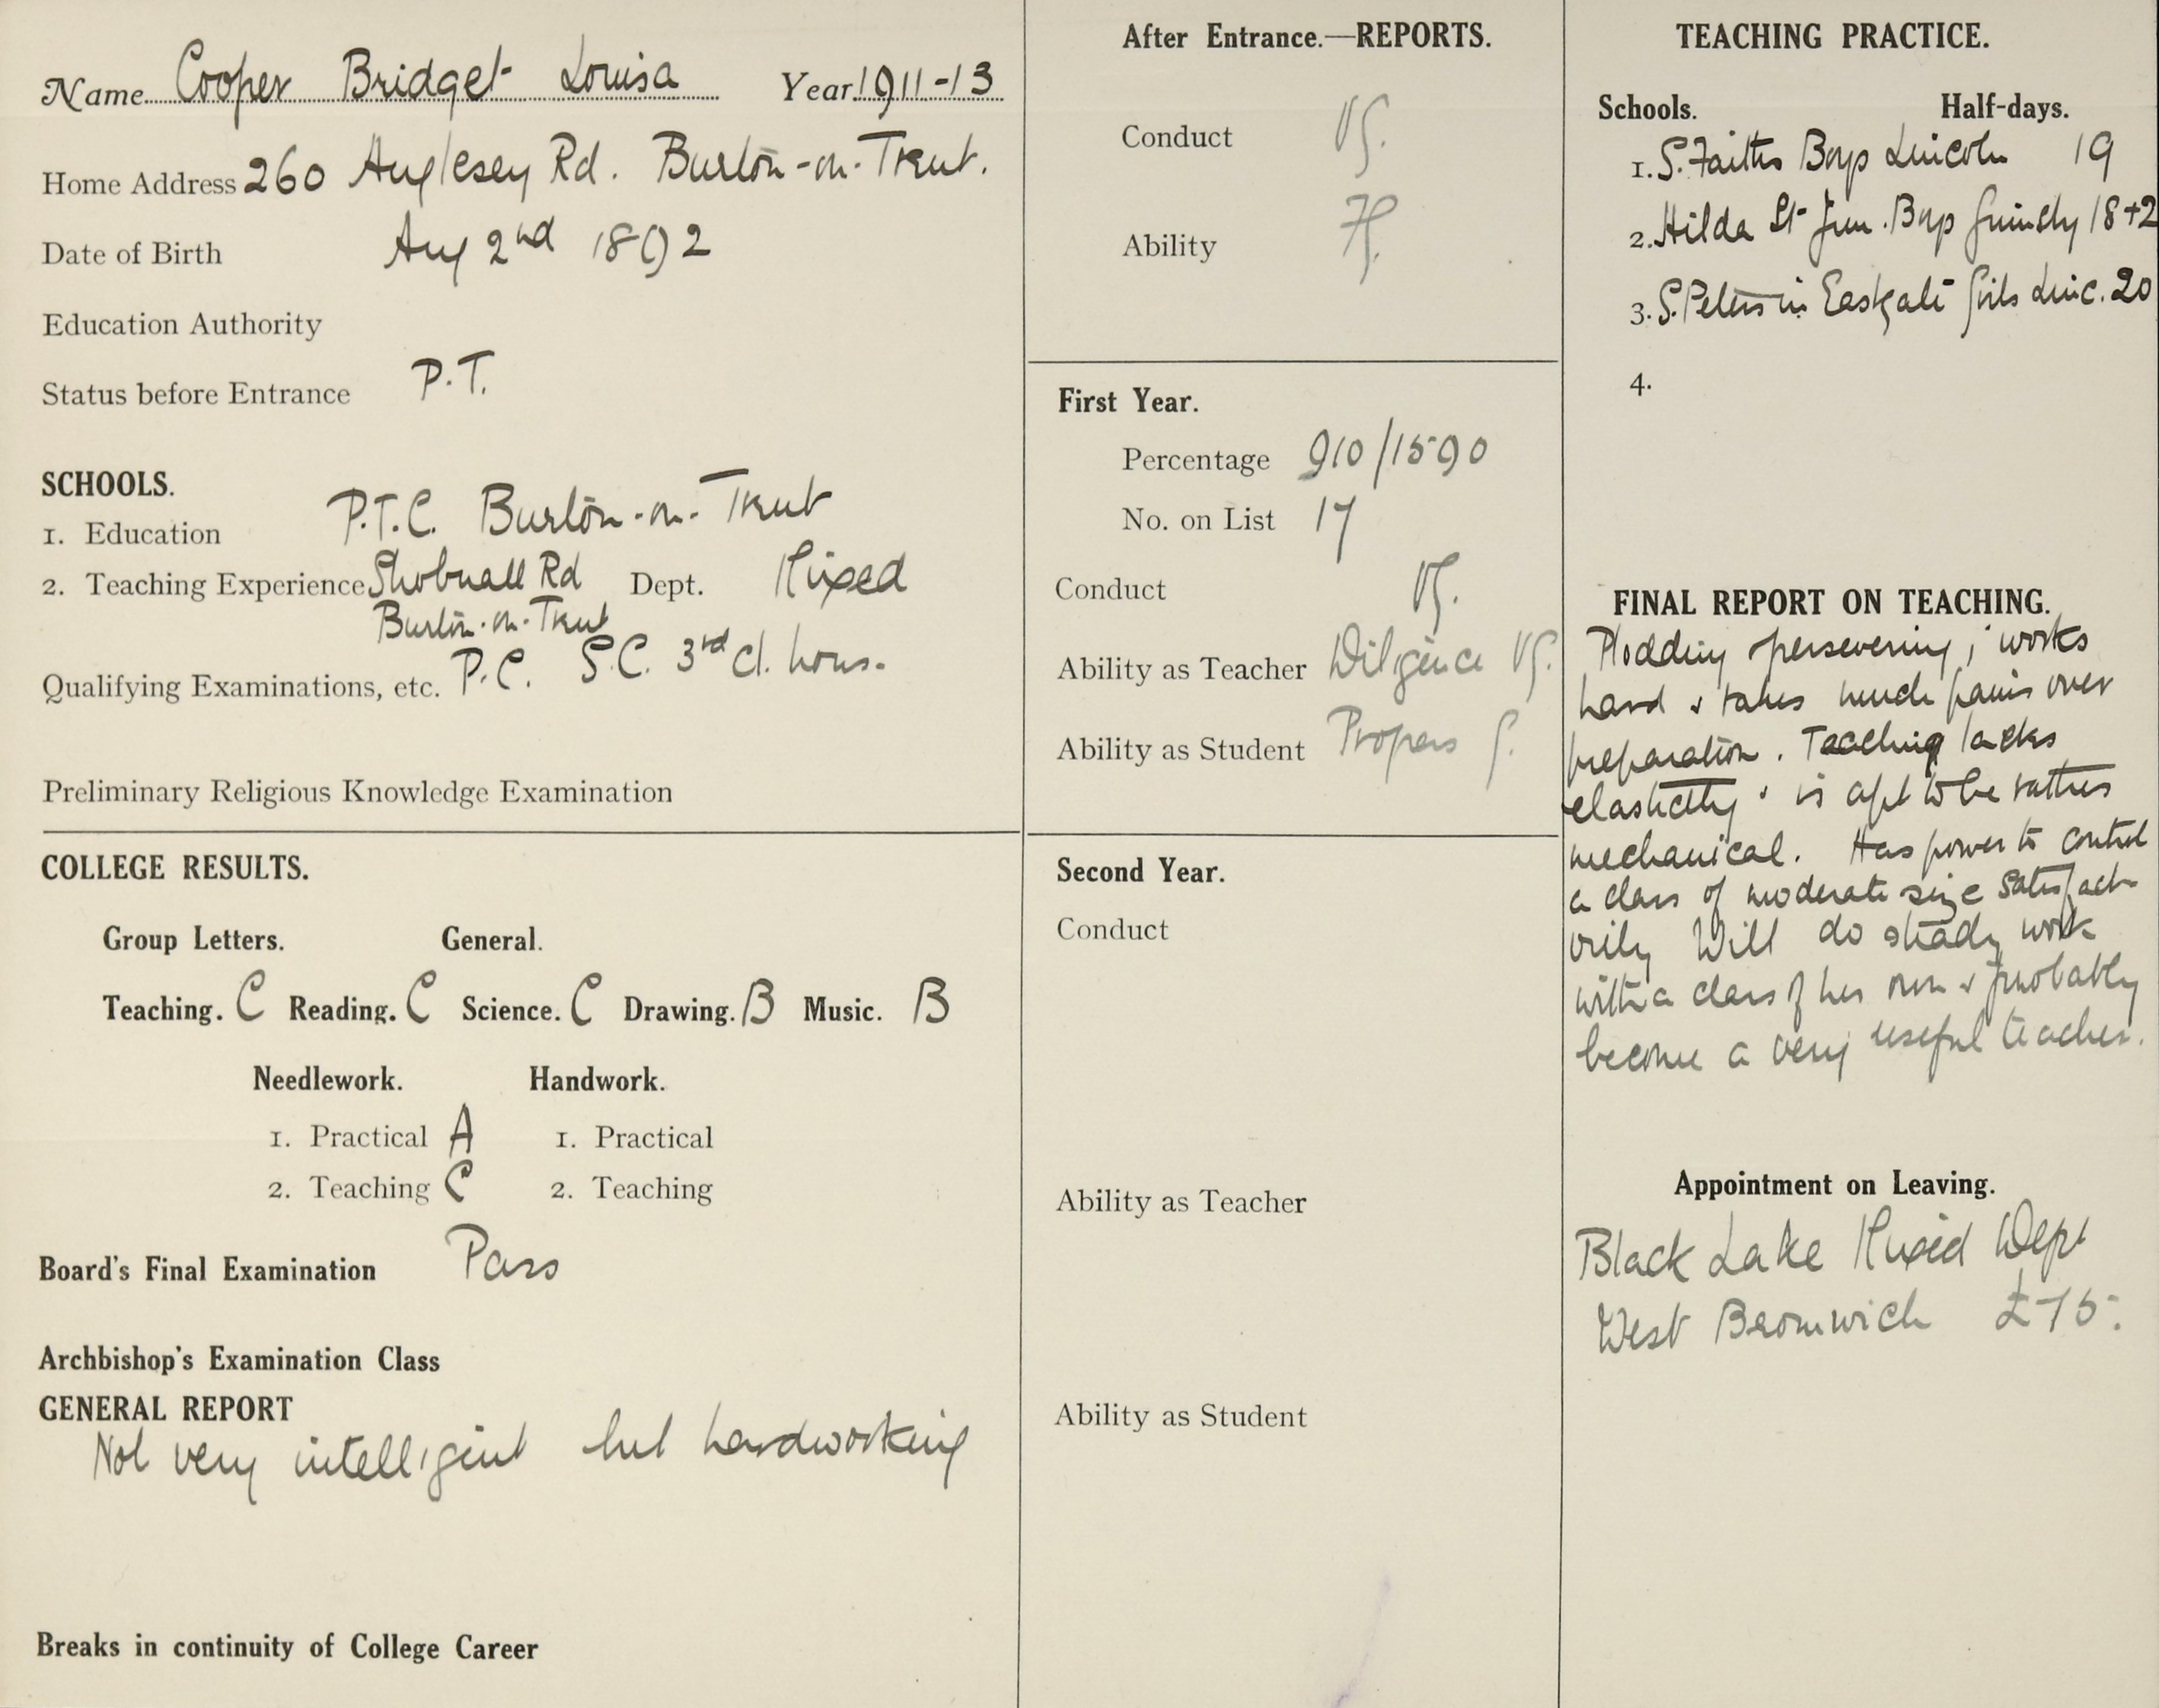 Name Cooper Bridget Louisa Year 1911-13
Home Address 260 Anglesey Rd. Burton-on-Trent.
Date of Birth Aug 2nd 1892
Education Authority
Status before Entrance P.T.
SCHOOLS.
1. Education P.T.C. Burton-on-Trent
2. Teaching Experience Shobnall Rd Dept. Mixed
Burton-on-Trent
Qualifying Examinations, etc. P.C. S.C. 3rd cl. hons.
Preliminary Religious Knowledge Examination
COLLEGE RESULTS.
Group Letters. General.
Teaching. C Reading. C Science. C Drawing. B Music. B
Needlework. Handwork.
1. Practical A 1. Practical
2. Teaching C 2. Teaching
Board's Final Examination Pass
Archbishop's Examination Class
GENERAL REPORT
Not very intelligent but hardworking
Breaks in continuity of College Career
After Entrance.—REPORTS.
Conduct VG.
Ability FG.
First Year.
Percentage 910/1590
No. on List 17
Conduct VG.
Ability as Teacher Diligence VG.
Ability as Student Progress G.
Second Year.
Conduct
Ability as Teacher
Ability as Student
TEACHING PRACTICE.
Schools. Half-days.
1. S. Faiths Boys Lincoln 19
2. Hilda St Jun. Boys Grimsby 18+2
3. S. Peters in Eastgate Girls Linc. 20
4.
FINAL REPORT ON TEACHING.
Plodding persevering; works
hard & takes much pains over
preparation. Teaching lacks
elasticity & is apt to be rather
mechanical. Has power to control
a class of moderate size satisfact-
orily Will do steady work
with a class of her own & probably
become a very useful teacher.
Appointment on Leaving.
Black Lake Mixed Dept
West Bromwich £75.